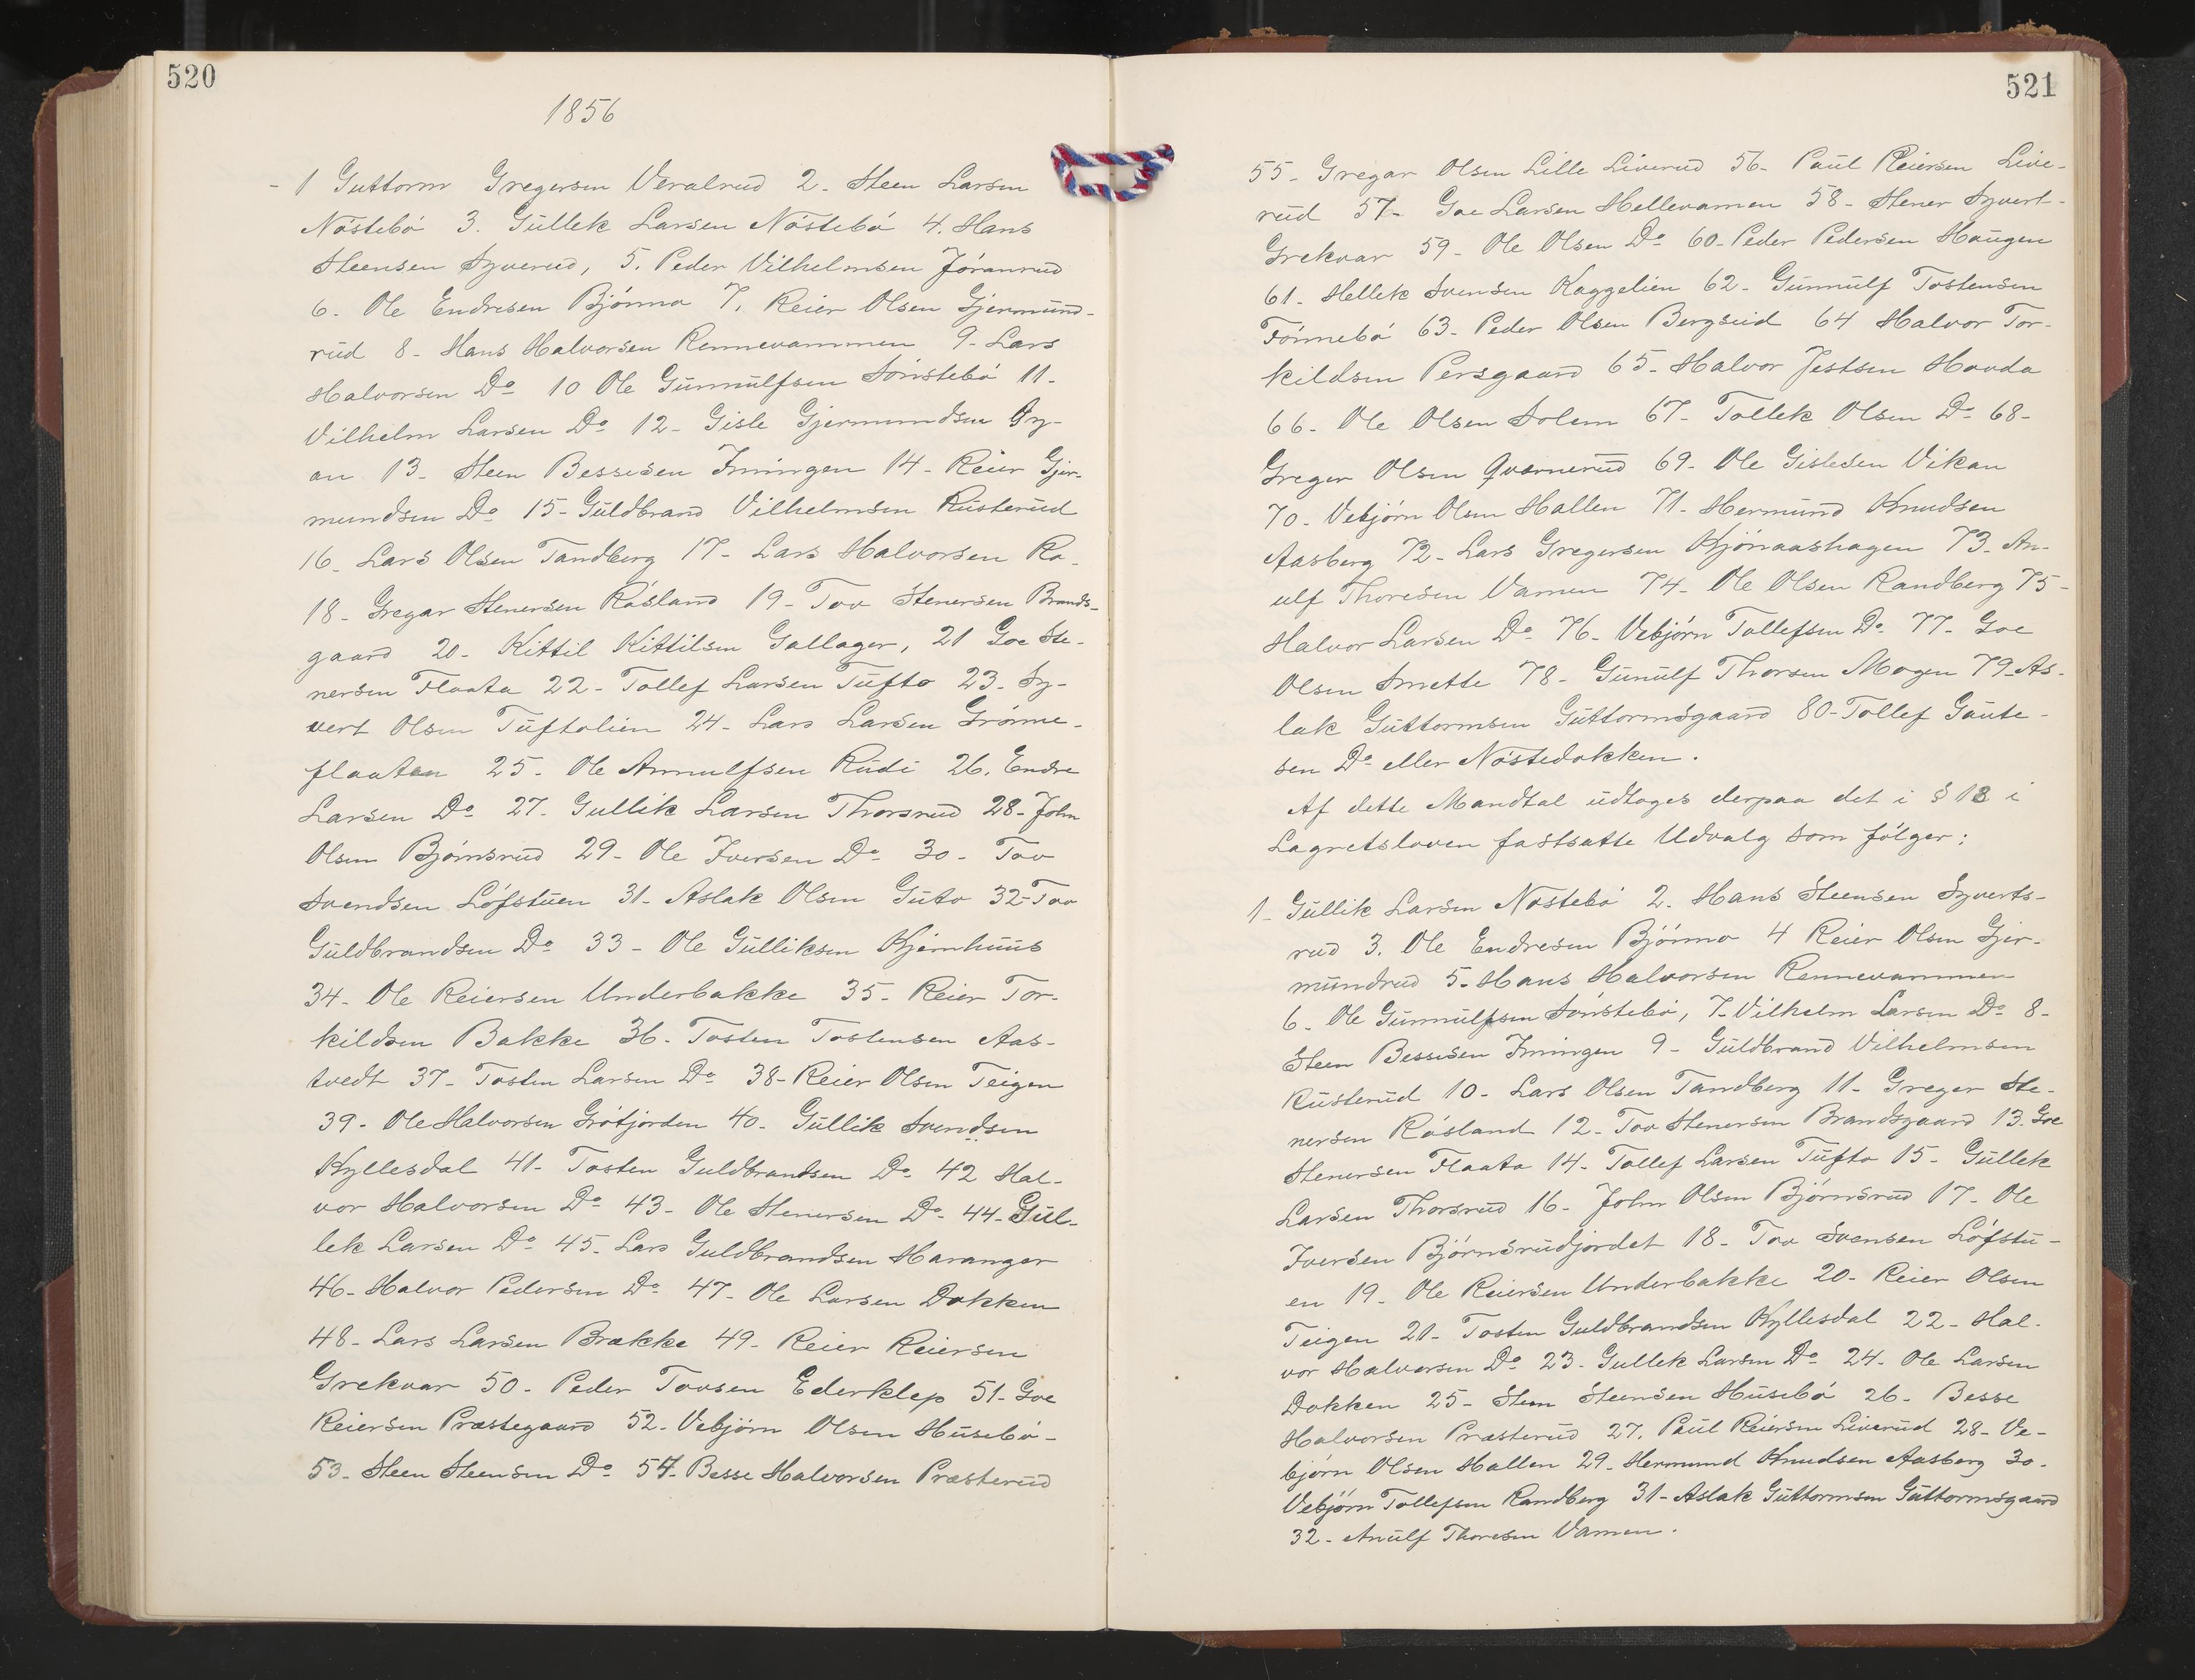 520
1856
- 1 Guttorm Gregersen Veralrud 2. Steen Larsen
Nóstebó 3. Gullek Larsen Nóstebó 4. Hans
Steensen Syverud, 5. Peder Vilhelmsen Jóranrud
6. Ole Endresen Bjónno 7, Reier Olsen Gjermund-
rud 8 - Hans Halvorsen Rennevammen 9 - Lars
Halvorsen Do 10 Ole Gunnulfsen Sónstebó 11 -
Vilhelm Larsen Do 12 - Gisle Gjermundsen By-
an 13 - Steen Bessesen Imingen 14 - Reier Gjer-
mundsen Do 15 - Guldbrand Vilhelmsen Rusterud
16 - Lars Olsen Tandberg 17 - Lars Halvorsen Ro -
18 - Gregar Stenersen Rósland 19 - Tov Stenersen Brands-
gaard 20 - Kittil Kittilsen Gallager, 21 Goe Ste-
nersen Flaata 22 - Tollef Larsen Tufto 23 - Sy-
vert Olsen Tuftolien 24 - Lars Larsen Grónne-
flaaten 25 - Ole Arnulfsen Rudi 26. Endre
Larsen Do 27. Gullik Larsen Thorsrud 28 - John
Olsen Bjórnsrud 29 - Ole Iversen Do 30 - Tov
Svendsen Lófstuen 31 - Aslak Olsen Guto 32 - Tov
Guldbrandsen Do 33 - Ole Gulliksen Kjernhuus
34 - Ole Reiersen Underbakke 35 - Reier Tor-
kildsen Bakke 36 - Tosten Tostensen Aas-
tvedt 37 - Tosten Larsen Do 38 - Reier Olsen Teigen
39 - Ole Halvorsen Grótjorden 40 - Gullik Svendsen
Kyllesdal 41 - Tosten Guldbrandsen Do 42 Hal-
vor Halvorsen Do 43 - Ole Stenersen Do 44 - Gul-
lek Larsen Do 45 - Lars Guldbrandsen Haranger
46 - Halvor Pedersen Do 47 - Ole Larsen Dokken
48 - Lars Larsen Brekke 49 - Reier Reiersen
Grekvar 50 - Peder Tovsen Ederklep 51 - Goe
Reiersen Præstegaard 52 - Vebjörn Olsen Husebó -
53 - Steen Steensen Do 54 - Besse Halvorsen Præsterud
521
55 - Gregar Olsen Lille Liverud 56 - Paul Reiersen Live-
rud 57 - Goe Larsen Hellevamen 58 - Stener Syvert-
Grekvar 59 - Ole Olsen Do 60 - Peder Pedersen Haugen
61 - Hellek Svensen Kaggelien 62 - Gunnulf Tostensen
Fónnebó 63 - Peder Olsen Bergseid 64 Halvor Tor-
kildsen Persgaard 65 - Halvor Jestsen Hovda
66 - Ole Olsen Solem 67 - Tollek Olsen Do 68 -
Greger Olsen Qvarnerud 69 - Ole Gislesen Vikan
70 - Vebjörn Olsen Hallen 71 - Hermund Knudsen
Aasberg 72 - Lars Gregersen Kjónaashagen 73 - An-
ulf Thoresen Vamen 74 - Ole Olsen Randberg 75 -
Halvor Larsen Do 76 - Vebjörn Tollefsen Do 77 - Goe
Olsen Smette 78 - Gunulf Thorsen Mogen 79 - As-
lak Guttormsen Guttormsgaard 80 - Tollef Gaute-
sen Do eller Nóstedokken.
Af dette Mandtal udtoges derpaa det i § 13 i
Lagretsloven fastsatte Udvalg som fólger;
1 - Gullik Larsen Nostebó 2. Hans Steensen Syverts-
rud 3. Ole Endresen Bjónno 4 Reier Olsen Gjer-
mundrud 5 - Hans Halvorsen Rennevammen
6 - Ole Gunnulfsen Sónstebó, 7 - Vilhelm Larsen Do 8 -
Steen Bessesen Imingen 9 - Guldbrand Vilhelmsen
Rusterud 10 - Lars Olsen Tandberg 11 - Greger Ste-
nersen Rósland 12 - Tov Stenersen Brandsgaard 13. Goe
Stenersen Flaata 14 - Tollef Larsen Tufto 15 - Gullek
Larsen Thorsrud 16 - John Olsen Björnsrud 17 - Ole
Iversen Bjórnsrudjordet 18 - Tov Svensen Lófstu-
en 19 - Ole Reiersen Underbakke 20 - Reier Olsen
Teigen 21 - Tosten Guldbrandsen Kyllesdal 22 - Hal-
vor Halvorsen Do 23 - Gullek Larsen Do 24 - Ole Larsen
Dokken 25 - Sten Steensen Husebó 26 - Besse
Halvorsen Præsterud 27. Paul Reiersen Liverud 28 - Ve-
bjórn Olsen Hallen 29 - Hermund Knudsen Aasberg 30 -
Vebjörn Tollefsen Randberg 31 - Aslak Guttormsen Guttormsgaard
32 - Anulf Thoresen Vamen.